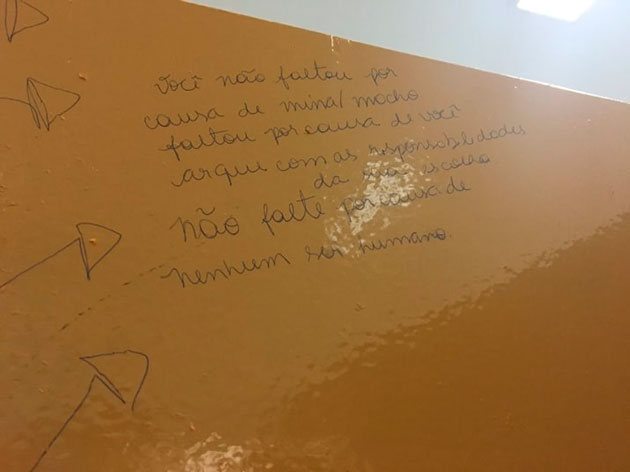 você não faltou por
causa de mina/macho
faltou por causa de você
arque com as responsabilidades
da sua escolha
não falte por causa de
nenhum ser humano.